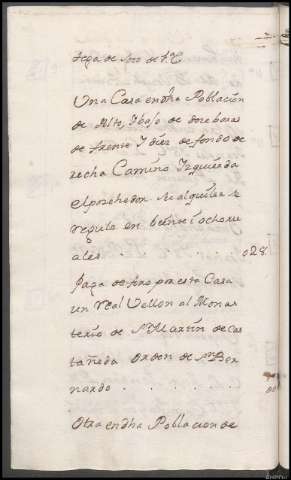 de
Una Casa en dha Poblacion
de Alto, i bajo de doze baras
de frente i diez de fondo de
recha Camino Izquierda
el su alquiler se
regula en beinte i ocho re
ales . . . 028
Paga de foro por esta Casa
un real Vellon al Monas
terio de Sn Martin de Cas
tañeda orden de Sn Ber
nardo . . . . .
Otra en dha Poblacion de